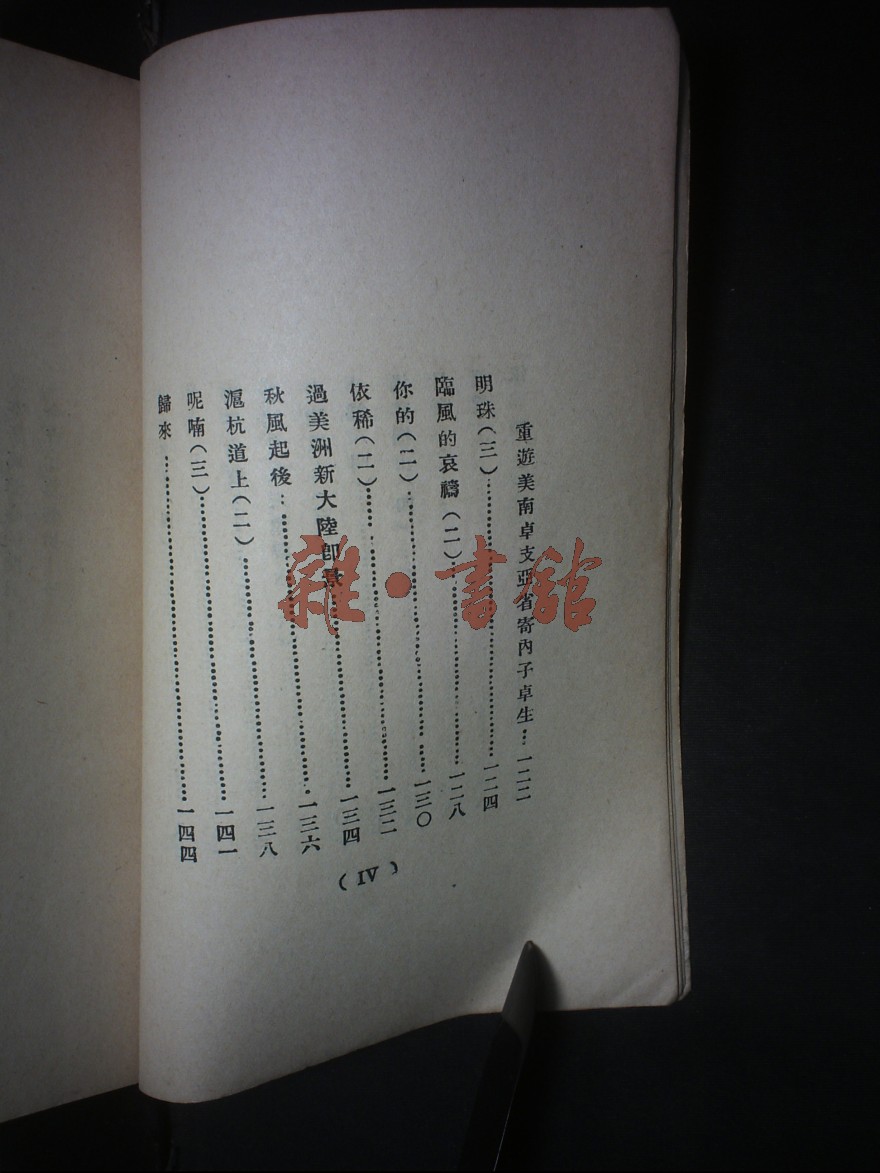 重遊美南卓支亞省寄內子卓生…一二二
明珠(三)……………………一二四
臨風的哀禱(二)……………………一二八
你的(二)……………………一三〇
依稀(二)……………………一三二
過美洲新大陸卽景……………………一三四
秋風起後……………………一三六
滬杭道上(二)……………………一三八
呢喃(三)……………………一四一
歸來……………………一四四
(IV)
雜·書館